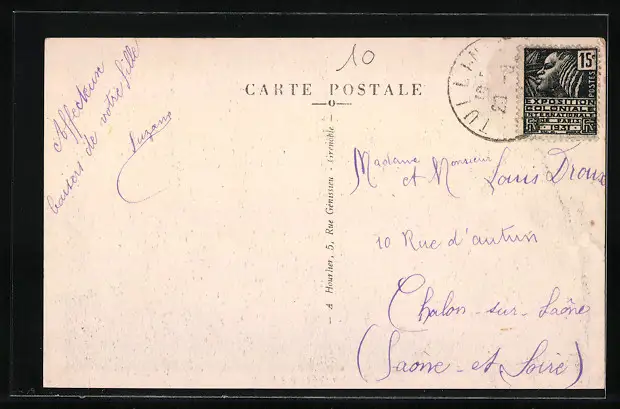 10
CARTE POSTALE
Affectueux
baisers de votre fille
Suzan
A Hourlier, 5, Rue Génissieu - Grenoble -
TULLIN
15c
POSTES
EXPOSITION
COLONIALE
INTERNATIONALE
DE PARIS
1931
Madame
et Monsieur Louis Droux
10 Rue d'autun
Chalon-sur-Saône
(Saône-et-Loire)